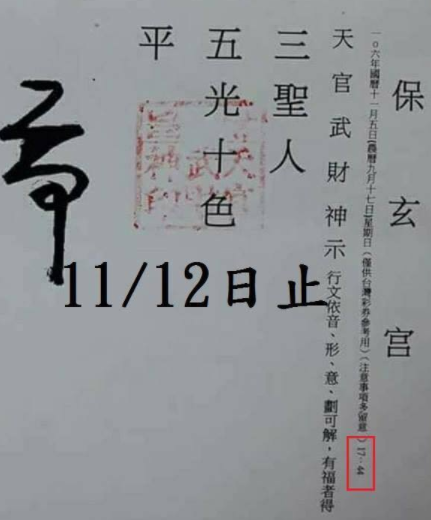 保玄宮
一0六年國曆十一月五日(農曆九月十七日)星期日(僅供台灣彩券參考用)(注意事項多留意)17:44
天官武財神示 行文依音、形、意、劃可解,有福者得
三聖人
五光十色
平
11/12日止